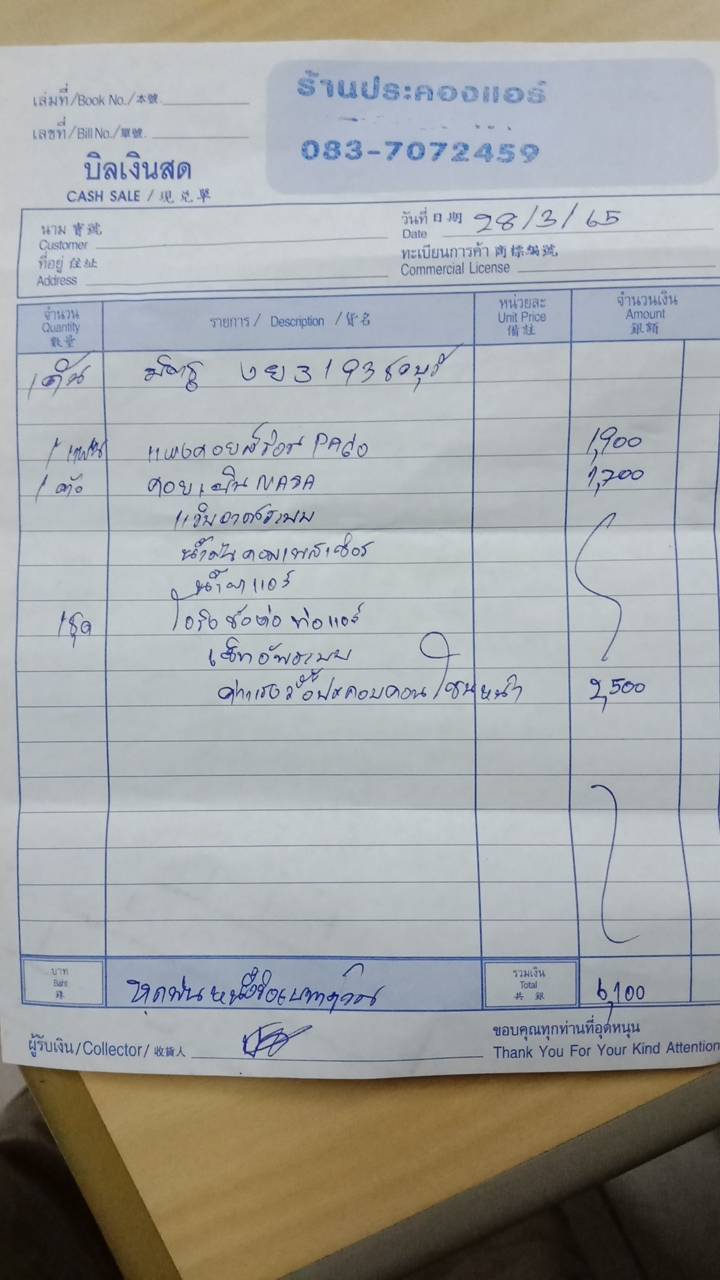 ร้านประคองแอร์
083-7072459
เล่มที่/Book No./本號
เลขที่/Bill No./單號
บิลเงินสด
CASH SALE / 現兌單
นาม 寶號
Customer
ที่อยู่ 住址
Address
วันที่ 日期 28/3/65
Date
ทะเบียนการค้า 商標編號
Commercial License
จำนวน รายการ / Description / 貨名 หน่วยละ จำนวนเงิน
Quantity Unit Price Amount
數量 備註 銀額
1คัน 3193 ชลบุรี
1 แผ่น แผงคอยล์ร้อน 1,900
1 ตัว คอยเย็น NASA 1,700
แว็คอากาศระบบ
น้ำมันคอมเพลเซอร์
น้ำยาแอร์
1ชุด โอริงข้อต่อท่อแอร์
ค่าแรงรื้อประกอบคอนโซนหน้า 2,500
บาท
Baht
銖
หกพันหนึ่งร้อยบาทถ้วน
รวมเงิน
Total
共銀
6,100
ผู้รับเงิน/Collector/收貨人
ขอบคุณทุกท่านที่อุดหนุน
Thank You For Your Kind Attention